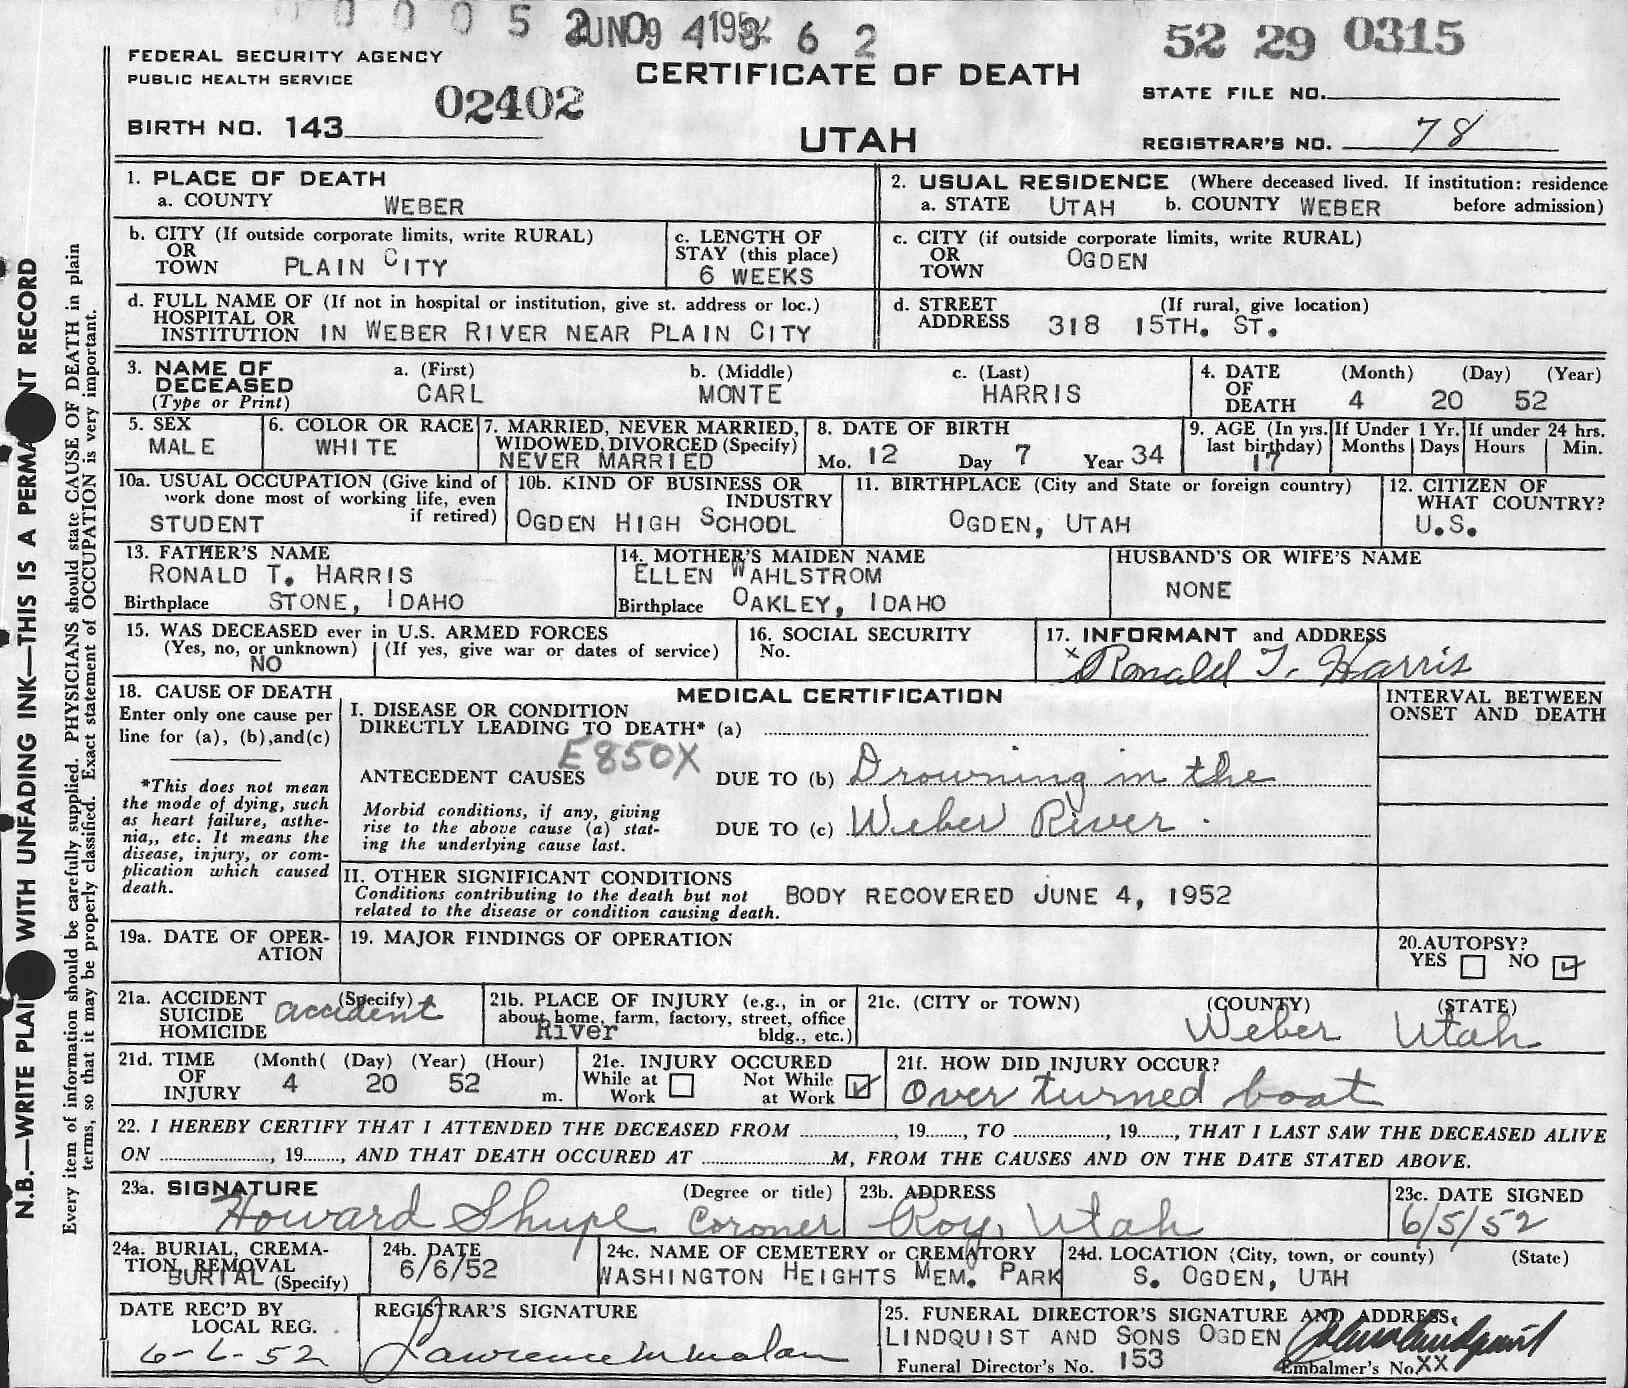 52 29 0315
FEDERAL SECURITY AGENCY
PUBLIC HEALTH SERVICE
CERTIFICATE OF DEATH
STATE FILE NO.
02402
BIRTH NO. 143
UTAH
REGISTRAR'S NO. 78
1. PLACE OF DEATH
a. COUNTY WEBER
2. USUAL RESIDENCE (Where deceased lived. If institution: residence
a. STATE UTAH b. COUNTY WEBER before admission)
b. CITY (If outside corporate limits, write RURAL)
OR
TOWN PLAIN CITY
c. LENGTH OF
STAY (this place)
6 WEEKS
c. CITY (if outside corporate limits, write RURAL)
OR
TOWN OGDEN
d. FULL NAME OF (If not in hospital or institution, give st. address or loc.)
HOSPITAL OR
INSTITUTION IN WEBER RIVER NEAR PLAIN CITY
d. STREET (If rural, give location)
ADDRESS 318 15TH. ST.
3. NAME OF
DECEASED
(Type or Print)
a. (First)
CARL
b. (Middle)
MONTE
c. (Last)
HARRIS
4. DATE (Month) (Day) (Year)
OF
DEATH 4 20 52
5. SEX
MALE
6. COLOR OR RACE
WHITE
7. MARRIED, NEVER MARRIED,
WIDOWED, DIVORCED (Specify)
NEVER MARRIED
8. DATE OF BIRTH
Mo. 12 Day 7 Year 34
9. AGE (In yrs.
last birthday)
17
If Under 1 Yr.
Months Days
If under 24 hrs.
Hours Min.
10a. USUAL OCCUPATION (Give kind of
work done most of working life, even
if retired)
STUDENT
10b. KIND OF BUSINESS OR
INDUSTRY
OGDEN HIGH SCHOOL
11. BIRTHPLACE (City and State or foreign country)
OGDEN, UTAH
12. CITIZEN OF
WHAT COUNTRY?
U.S.
13. FATHER'S NAME
RONALD T. HARRIS
Birthplace STONE, IDAHO
14. MOTHER'S MAIDEN NAME
ELLEN WAHLSTROM
Birthplace OAKLEY, IDAHO
HUSBAND'S OR WIFE'S NAME
NONE
15. WAS DECEASED ever in U.S. ARMED FORCES
(Yes, no, or unknown) (If yes, give war or dates of service)
NO
16. SOCIAL SECURITY
No.
17. INFORMANT and ADDRESS
x Ronald T. Harris
18. CAUSE OF DEATH
Enter only one cause per
line for (a), (b), and (c)
*This does not mean
the mode of dying, such
as heart failure, asthe-
nia,, etc. It means the
disease, injury, or com-
plication which caused
death.
MEDICAL CERTIFICATION
I. DISEASE OR CONDITION
DIRECTLY LEADING TO DEATH* (a)
E850X
ANTECEDENT CAUSES DUE TO (b) Drowning in the
Morbid conditions, if any, giving
rise to the above cause (a) stat-
ing the underlying cause last.
DUE TO (c) Weber River.
II. OTHER SIGNIFICANT CONDITIONS
Conditions contributing to the death but not
related to the disease or condition causing death.
BODY RECOVERED JUNE 4, 1952
INTERVAL BETWEEN
ONSET AND DEATH
19a. DATE OF OPER-
ATION
19. MAJOR FINDINGS OF OPERATION
20. AUTOPSY?
YES NO
21a. ACCIDENT (Specify)
SUICIDE
HOMICIDE
accident
21b. PLACE OF INJURY (e.g., in or
about home, farm, factory, street, office
bldg., etc.)
River
21c. (CITY or TOWN) (COUNTY) (STATE)
Weber Utah
21d. TIME (Month( (Day) (Year) (Hour)
OF
INJURY 4 20 52 m.
21e. INJURY OCCURED
While at Work
Not While at Work
21f. HOW DID INJURY OCCUR?
Over turned boat
22. I HEREBY CERTIFY THAT I ATTENDED THE DECEASED FROM , 19 , TO , 19 , THAT I LAST SAW THE DECEASED ALIVE
ON , 19 , AND THAT DEATH OCCURED AT M, FROM THE CAUSES AND ON THE DATE STATED ABOVE.
23a. SIGNATURE (Degree or title)
Howard Shupe Coroner
23b. ADDRESS
Roy, Utah
23c. DATE SIGNED
6/5/52
24a. BURIAL, CREMA-
TION, REMOVAL
BURIAL (Specify)
24b. DATE
6/6/52
24c. NAME OF CEMETERY or CREMATORY
WASHINGTON HEIGHTS MEM. PARK
24d. LOCATION (City, town, or county) (State)
S. OGDEN, UTAH
DATE REC'D BY
LOCAL REG.
6-6-52
REGISTRAR'S SIGNATURE
25. FUNERAL DIRECTOR'S SIGNATURE AND ADDRESS.
LINDQUIST AND SONS OGDEN
Funeral Director's No. 153
Embalmer's No. XX
Every item of information should be carefully supplied. PHYSICIANS should state CAUSE OF DEATH in plain
terms, so that it may be properly classified. Exact statement of OCCUPATION is very important.